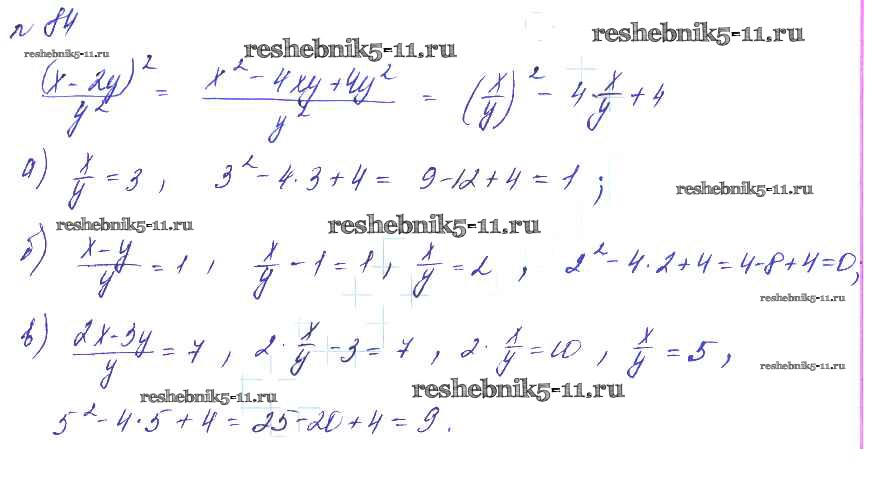 № 84
reshebnik5-11.ru reshebnik5-11.ru reshebnik5-11.ru
(x - 2y)²/y² = (x² - 4xy + 4y²)/y² = (x/y)² - 4·x/y + 4
а) x/y = 3, 3² - 4·3 + 4 = 9 - 12 + 4 = 1;
reshebnik5-11.ru
reshebnik5-11.ru reshebnik5-11.ru
б) (x - y)/y = 1, x/y - 1 = 1, x/y = 2, 2² - 4·2 + 4 = 4 - 8 + 4 = 0;
reshebnik5-11.ru
в) (2x - 3y)/y = 7, 2·x/y - 3 = 7, 2·x/y = 10, x/y = 5,
reshebnik5-11.ru
reshebnik5-11.ru reshebnik5-11.ru
5² - 4·5 + 4 = 25 - 20 + 4 = 9.